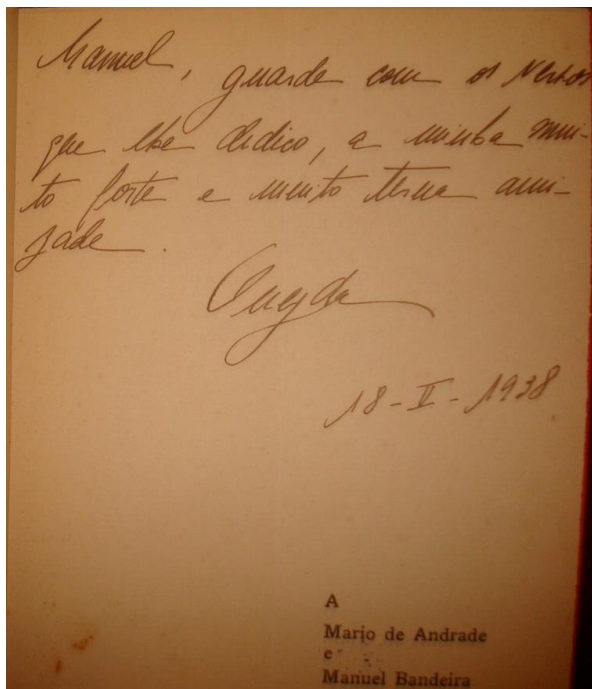 Manuel, guarde com os versos
que lhe dedico, a minha mui-
to forte e muito terna ami-
zade.
18-II-1938
A
Mario de Andrade
e
Manuel Bandeira